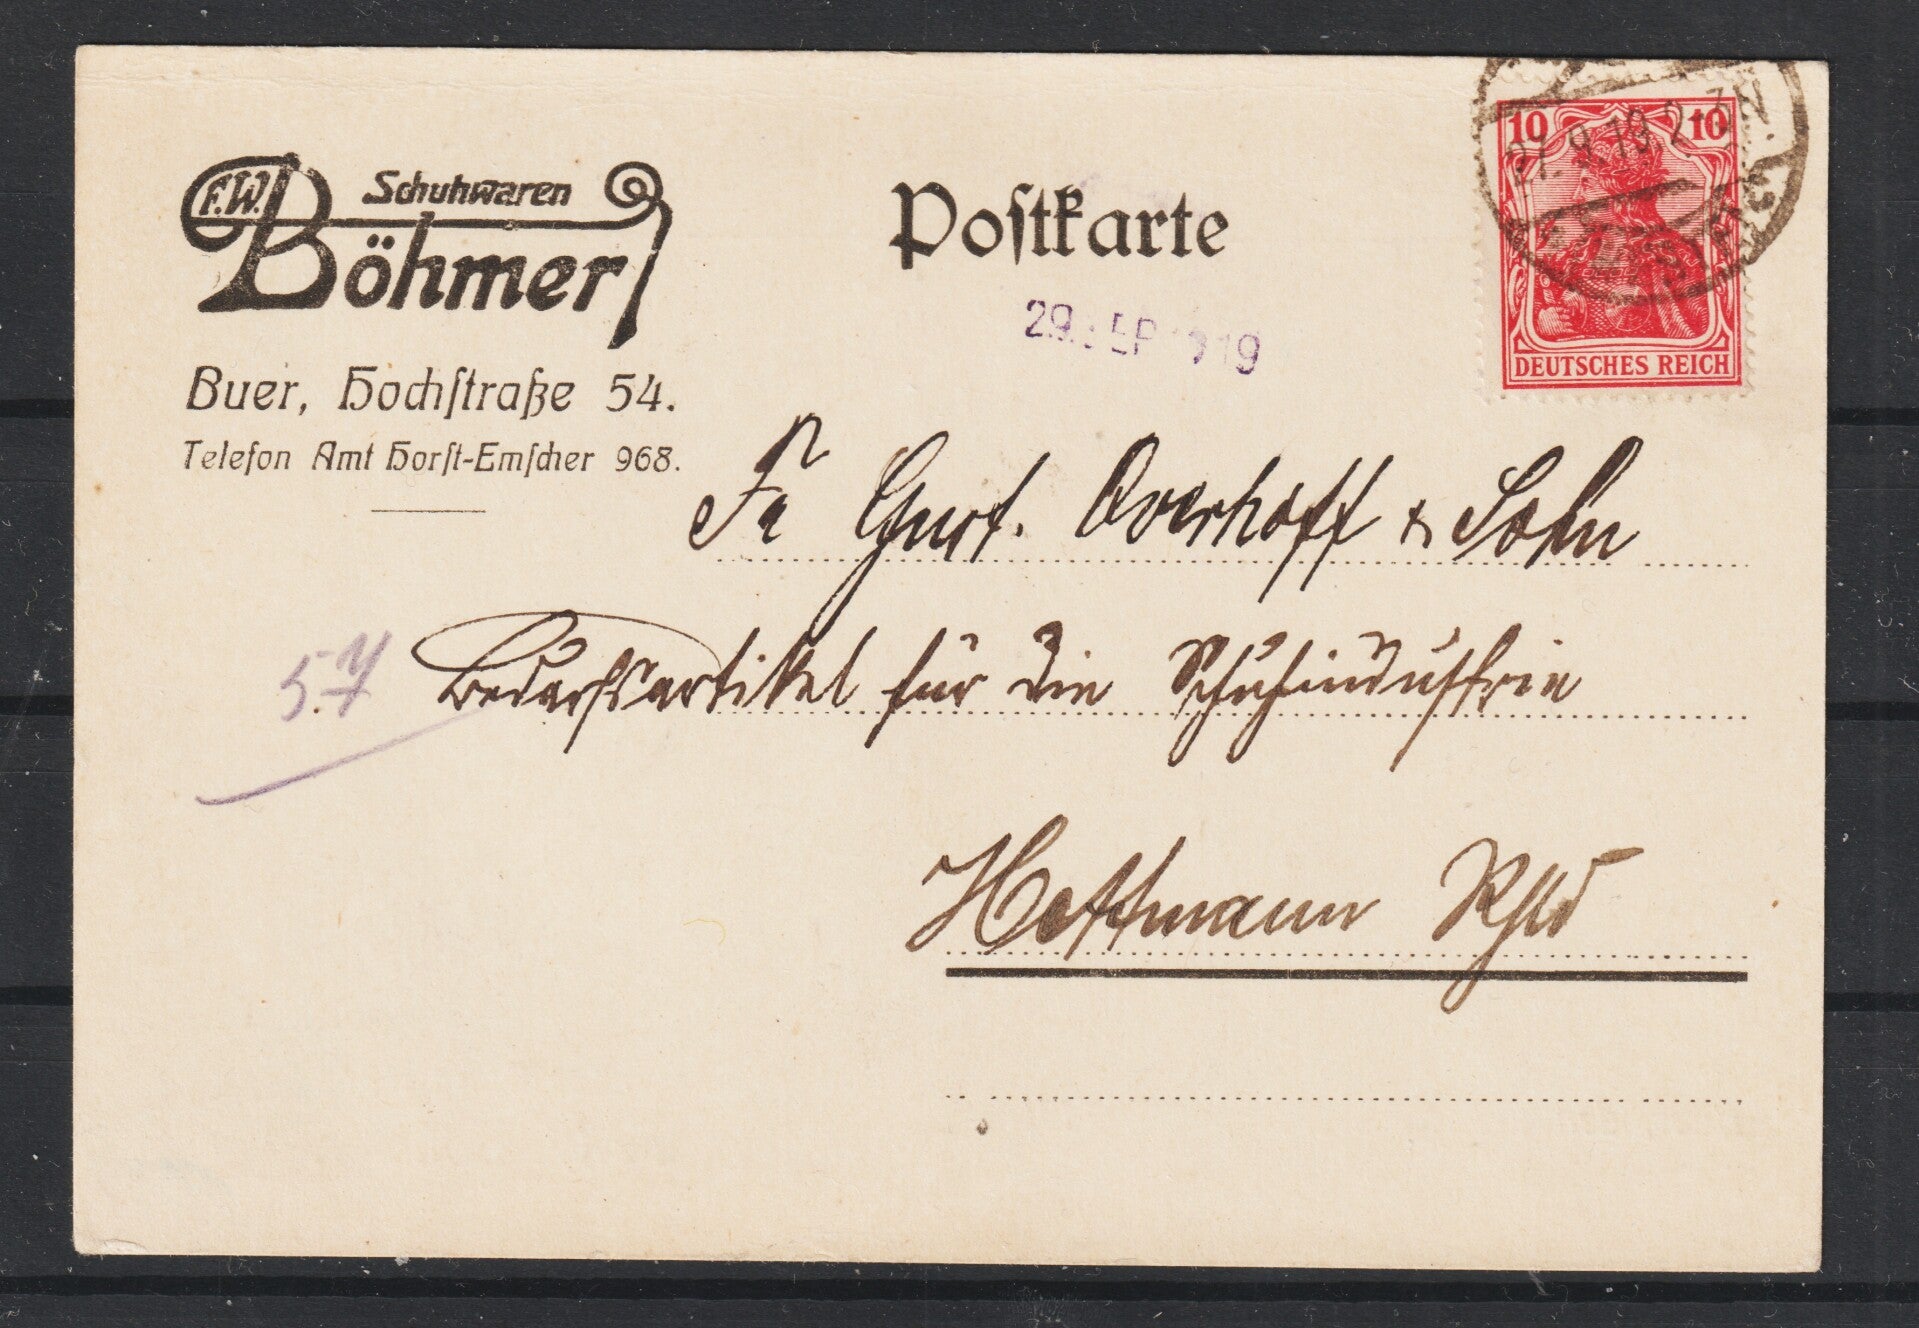 F.W. Schuhwaren
Böhmer
Buer, Hochstraße 54.
Telefon Amt Horst-Emscher 968.
Postkarte
29. SEP 1919
10 10
27.9.19.2-3N.
DEUTSCHES REICH
Fa Gust. Overhoff & Sohn
Bedarfsartikel für die Schuhindustrie
57
Mettmann Rhld